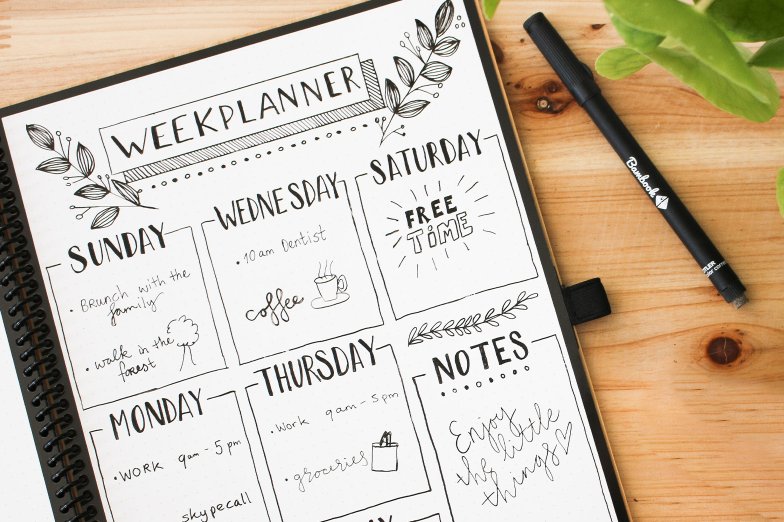 WEEKPLANNER
SUNDAY
• Brunch with the
family
• walk in the
forest
WEDNESDAY
• 10am Dentist
coffee
SATURDAY
FREE
TIME
MONDAY
• WORK 9am - 5pm
skypecall
THURSDAY
• Work 9am - 5pm
• groceries
NOTES
Enjoy
the little
things
Bambook